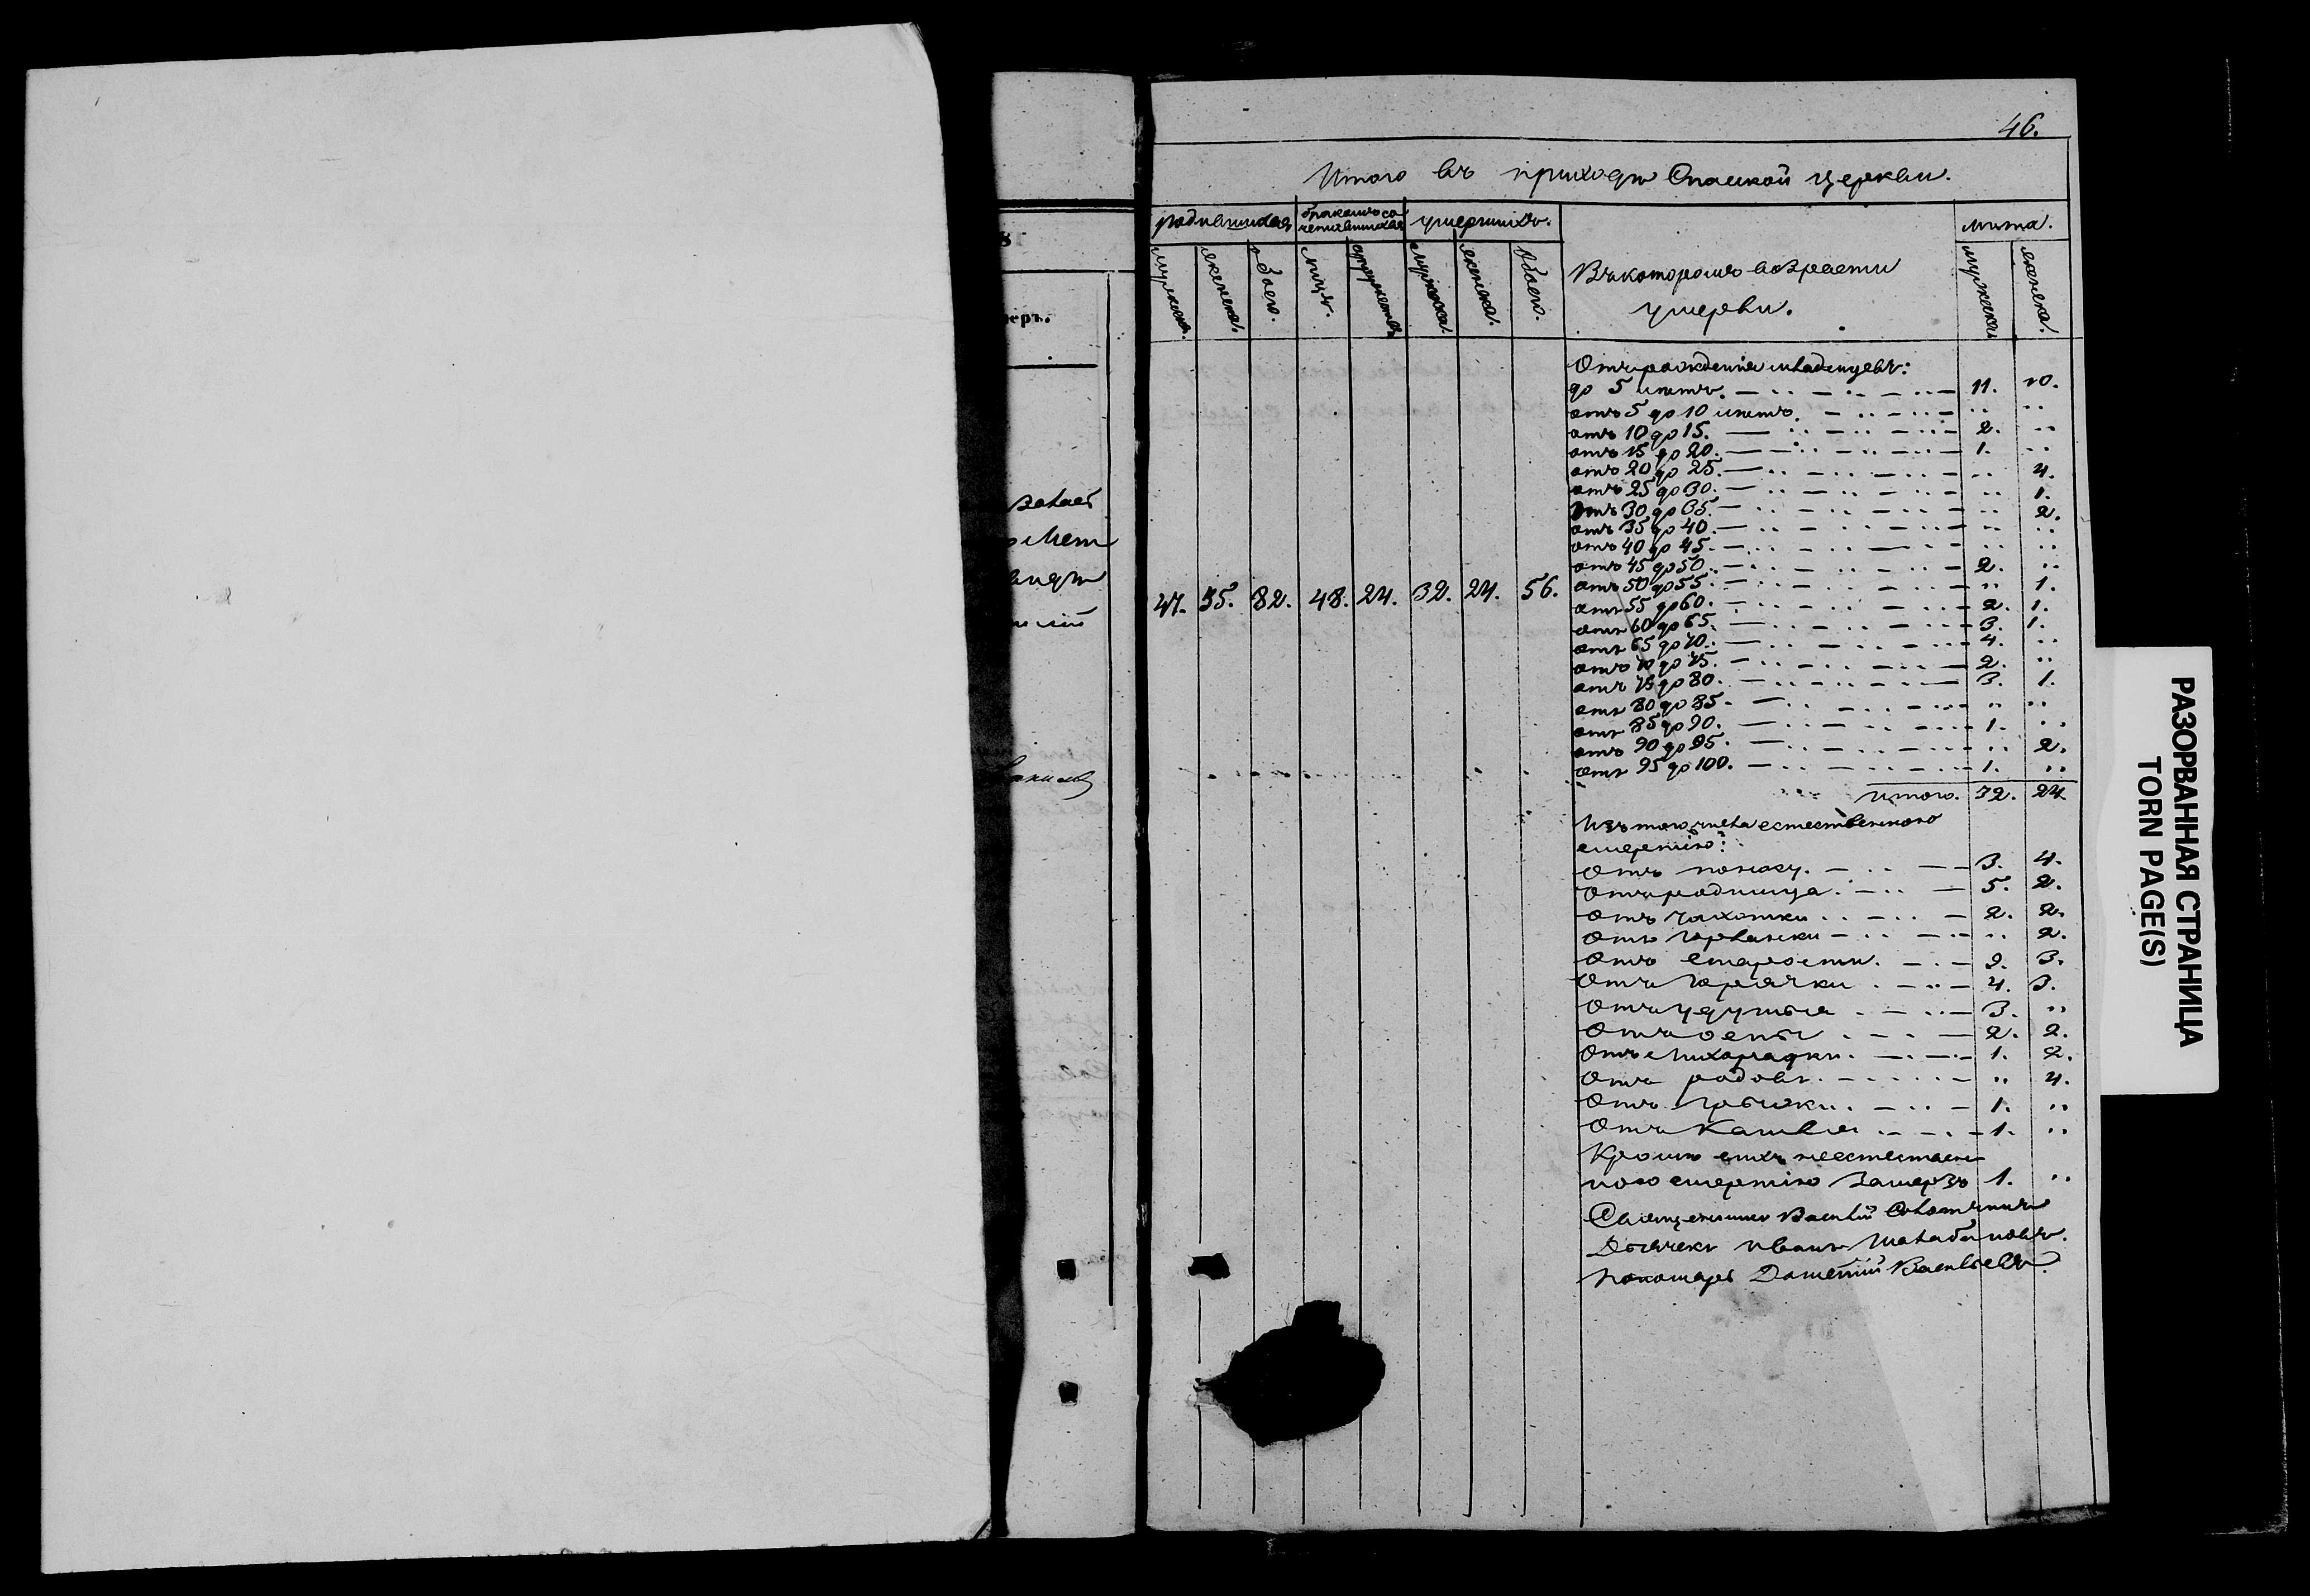 46.
Итого въ приходѣ Спаской церкви.
родившихся
бракомъ со-
четавшихся
умершихъ.
лѣта.
мужеска.
женска.
обоего.
лицъ.
супружествъ
мужеска.
женска.
обоего.
Въ которомъ возрасти
умерли.
мужеска
женска.
Отъ рожденія младенцевъ:
до 5 лѣтъ. 11. 10.
отъ 5 до 10 лѣтъ. „ „
отъ 10 до 15. 2. „
отъ 15 до 20. 1. „
отъ 20 до 25. „ 4.
отъ 25 до 30. „ 1.
отъ 30 до 35. „ 2.
отъ 35 до 40. „ „
отъ 40 до 45. „ „
отъ 45 до 50. 2. „
отъ 50 до 55. „ 1.
47. 35. 82. 48. 24. 32. 24. 56.
отъ 55 до 60. 2. 1.
отъ 60 до 65. 3. 1.
отъ 65 до 70. 4. „
отъ 70 до 75. 2. „
отъ 75 до 80. 3. 1.
отъ 80 до 85. „ „
отъ 85 до 90. 1. „
отъ 90 до 95. „ 2.
отъ 95 до 100. 1. „
Итого. 32. 24
Изъ того числа естественною
смертію:
Отъ поносу. 3. 4.
Отъ родимца. 5. 2.
Отъ чахотки. 2. 2.
Отъ горлянки „ 2.
Отъ старости. 9. 3.
Отъ горячки 4. 3.
Отъ удушья 3. „
Отъ оспы 2. 2.
Отъ лихорадки. 1. 2.
Отъ родовъ. „ 4.
Отъ грыжи. 1. „
Отъ кашля 1. „
Кромѣ сихъ неестествен
ною смертію Замерзъ 1. „
Священникъ Василій
Дьячекъ Иванъ
Пономарь Дометій Васильевъ.
8
еръ.
РАЗОРВАННАЯ СТРАНИЦА
TORN PAGE(S)